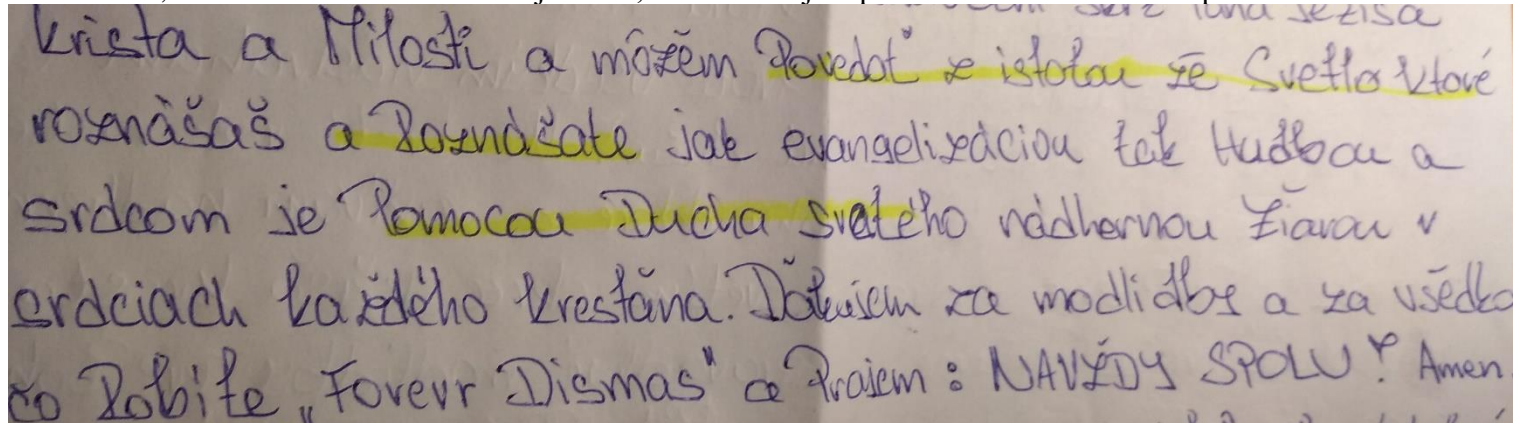 Krista a Milosti a môžem Povedať z istotou že Svetlo ktoré
roznášaš a Roznášate jak evangelizáciou tak Hudbou a
srdcom je Pomocou Ducha svatého nádhernou Žiarou v
srdciach každého kresťána. Ďäkujem za modlidby a za všédko
čo Robíte „Forevr Dismas" a Prajem : NAVŽDY SPOLU! Amen.